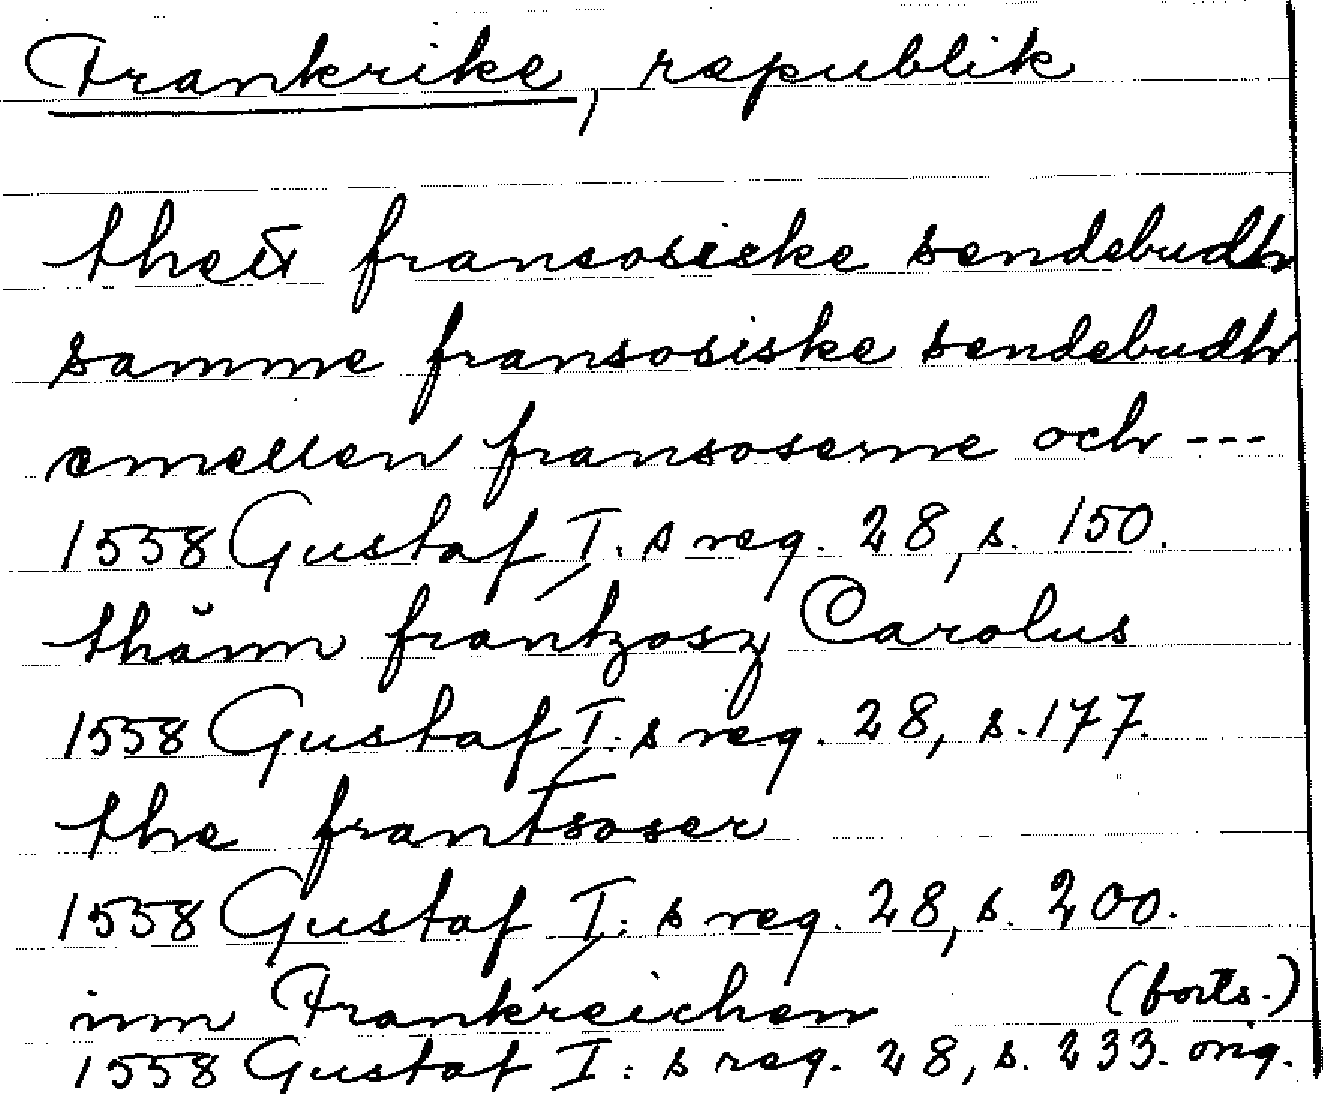 Frankrike, republik
thett fransosiske sendebudh
samme fransosiske sendebudh
emellen fransoserne och ---
1558 Gustaf I:s reg. 28, s. 150.
thänn frantzosz Carolus
1558 Gustaf I:s reg. 28, s. 177.
the frantsoser
1558 Gustaf I:s reg. 28, s. 200.
inn Frankreichen (forts.)
1558 Gustaf I:s reg. 28, s. 233. orig.